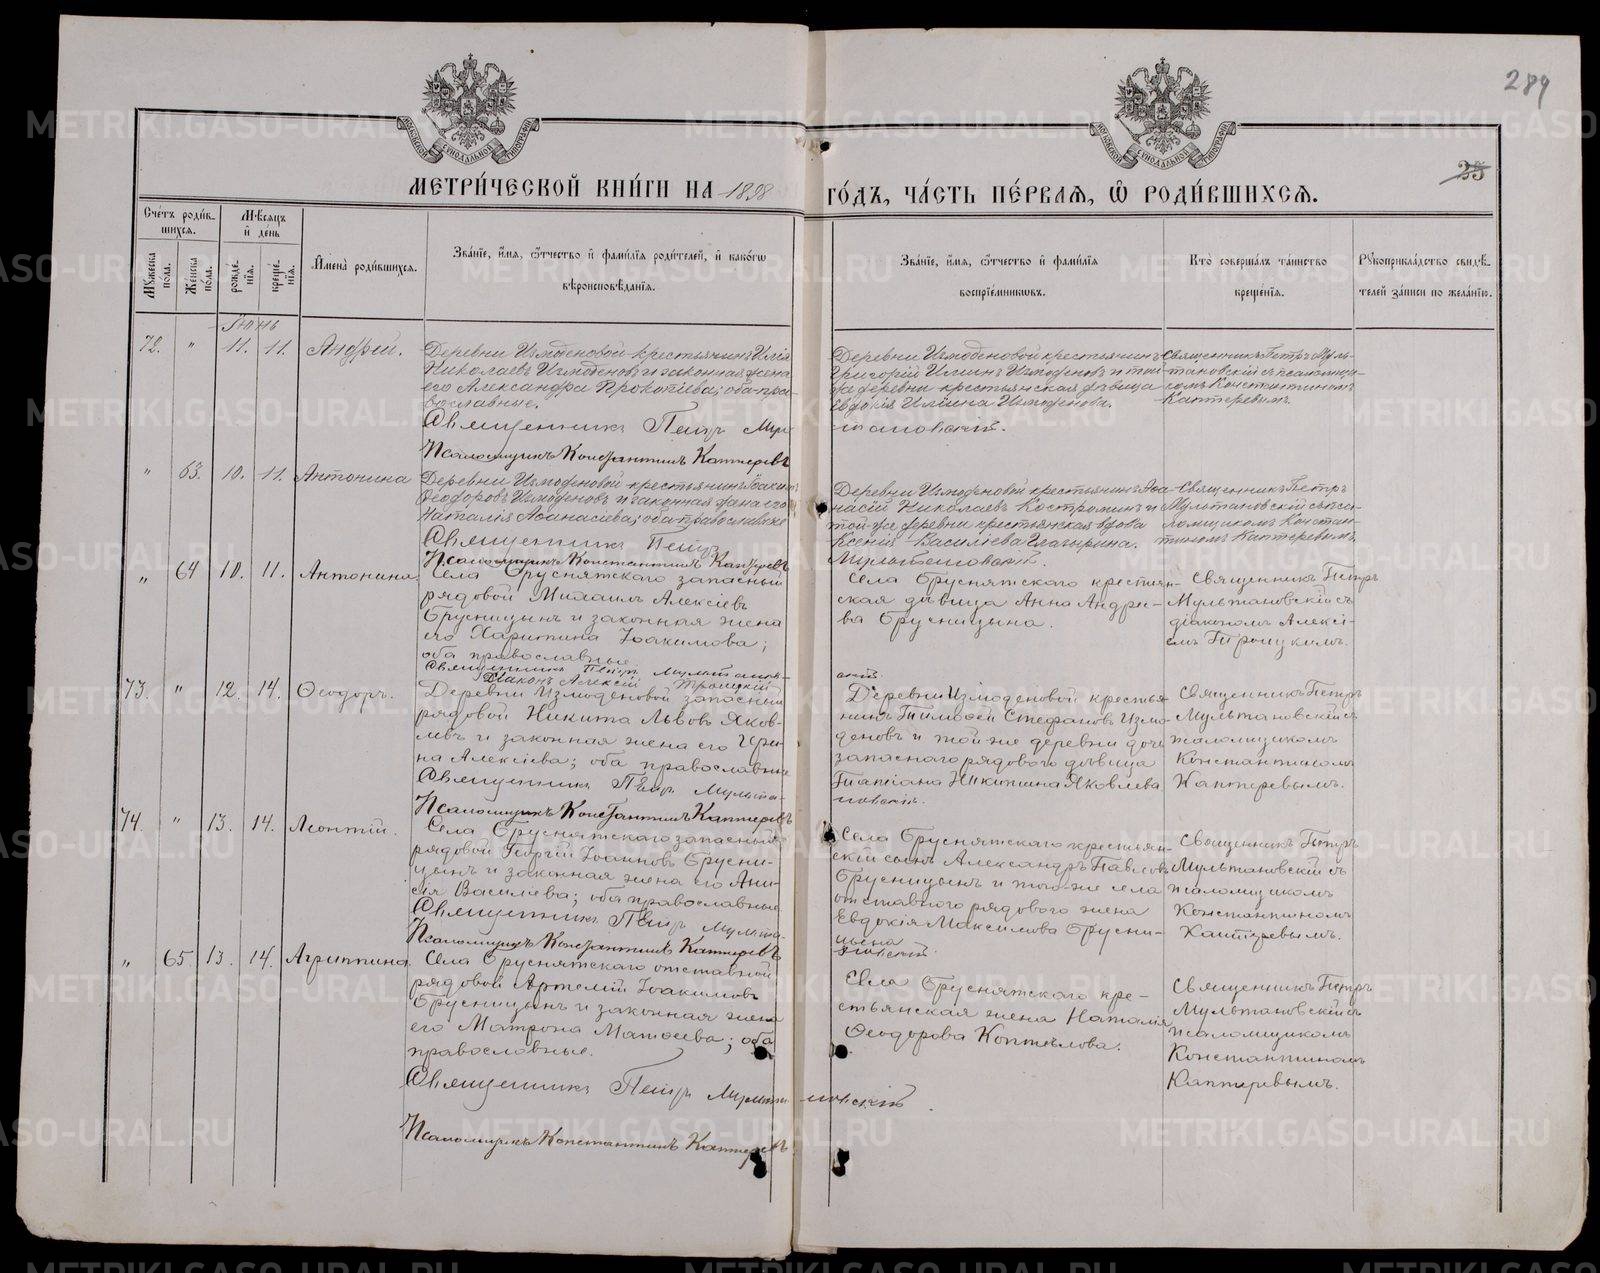 289
25
МЕТРИ́ЧЕСКОЙ КНИ́ГИ НА 1898 ГО́ДЪ, ЧА́СТЬ ПЕ́РВАЯ, Ѽ РОДИ́ВШИХСЯ.
Сче́тъ роди́в-
шихся.
Мѣ́сяцъ
и҆ де́нь
Мꙋ́жеска по́ла.
Же́нска по́ла.
рожде́-
нія.
креще́-
нія.
И҆мена̀ роди́вшихся.
Зва́нїе, и҆́мя, ѻ҆́тчество и҆ фами́лїя роди́телей, и҆ како́гѡ
вѣроисповѣ́данїя.
Зва́нїе, и҆́мя, ѻ҆́тчество и҆ фами́лїя
воспрїе́мниковъ.
Кто̀ соверша́лъ та́инство
креще́нїя.
Рꙋкоприкла́дство свидѣ́-
телей за́писи по жела́нїю.
Іюнь
72. " 11. 11. Андрей.
Деревни Измоденовой крестьянинъ Илія
Николаевъ Измоденовъ и законная жена
его Александра Прокопіева; оба пра-
вославные.
Священникъ Петръ Мульт
ановскій.
Псаломщикъ Константинъ Каптеревъ
Деревни Измоденовой крестьянинъ
Григорій Илiинъ Измоденовъ и той
же деревни крестьянская дѣвица
Евдокія Иліина Измоденова.
Священникъ Петръ Муль-
тановскій съ псаломщи-
комъ Константиномъ
Каптеревымъ.
" 63. 10. 11. Антонина
Деревни Измоденовой крестьянинъ Іоакимъ
Ѳеодоровъ Измоденовъ и законная жена его
Наталія Аѳанасіева; оба православные
Священникъ Петръ
Мультановскій.
Псаломщикъ Константинъ Каптеревъ
Деревни Измоденовой крестьянинъ Аѳа-
насій Николаевъ Костроминъ и
той-же деревни крестьянская вдова
Ксенія Василіева
Священникъ Петръ
Мультановскій съ пса-
ломщикомъ Констан-
тиномъ Каптеревымъ.
" 64 10. 11. Антонина.
Села Бруснятскаго запасный
рядовой Михаилъ Алексіевъ
Брусницынъ и законная жена
его Харитина Іоакимова;
оба православные
Священникъ Петръ Мультанов-
скій.
Діаконъ Алексій Троицкій
Села Бруснятскаго крестьян-
ская дѣвица Анна Андрі-
ва Брусницына.
Священникъ Петръ
Мультановскій съ
діакономъ Алексі-
емъ Троицкимъ.
73. " 12. 14. Ѳеодоръ.
Деревни Измоденовой запасный
рядовой Никита Львовъ Яков-
левъ и законная жена его Ири-
на Алексіева; оба православные
Священникъ Петръ Мульта-
новскій.
Псаломщикъ Константинъ Каптеревъ
Деревни Измоденовой крестья-
нинъ Тимоѳей Стефановъ Измо-
деновъ и той-же деревни дочь
запаснаго рядового дѣвица
Татіана Никитина Яковлева
Священникъ Петръ
Мультановскій съ
псаломщикомъ
Константиномъ
Каптеревымъ.
74. " 13. 14. Леонтій.
Села Бруснятскаго запасный
рядовой Георгій Іоанновъ Брусни-
цынъ и законная жена его Ани-
сія Василіева; оба православные
Священникъ Петръ Мульта-
новскій.
Псаломщикъ Константинъ Каптеревъ
Села Бруснятскаго крестьян-
скій сынъ Александръ Павловъ
Брусницынъ и того-же села
отставного рядового жена
Евдокія Максимова Брусни-
цына
Священникъ Петръ
Мультановскій съ
псаломщикомъ
Константиномъ
Каптеревымъ.
" 65. 13. 14. Агриппина.
Села Бруснятскаго отставной
рядовой Артемій Іоакимовъ
Брусницынъ и законная жена
его Матрона Матѳеева; оба
православные.
Священникъ Петръ Мультановскій.
Псаломщикъ Константинъ Каптеревъ
Села Бруснятскаго кре-
стьянская жена Наталія
Ѳеодорова Коптелова.
Священникъ Петръ
Мультановскій съ
псаломщикомъ
Константиномъ
Каптеревымъ.
METRIKI.GASO-URAL.RU